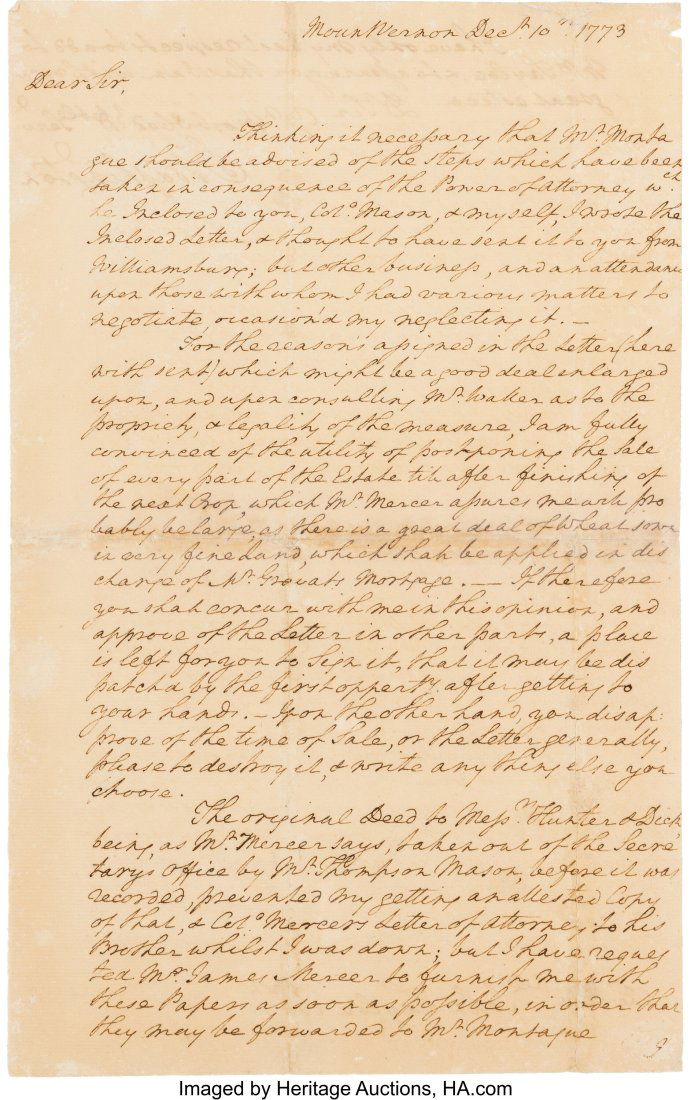 Mount Vernon Decr. 10th. 1773
Dear Sir,
Thinking it necessary that Mr. Monta
gue should be advised of the steps which have been
taken in consequence of the Power of Attorney wch.
he Inclosed to you, Colo. Mason, & myself, I wrote the
Inclosed Letter, & thought to have sent it to you from
Williamsburg; but other business, and an attendance
upon those with whom I had various matters to
negotiate, occasion'd my neglecting it. —
For the reason's assigned in the Letter (here
with sent) which might be a good deal enlarged
upon, and upon consulting Mr. Waller as to the
propriety, & legality of the measure, I am fully
convinced of the utility of postponing the Sale
of every part of the Estate till after finishing of
the next Crop, which Mr. Mercer assures me will pro
bably be large, as there is a great deal of Wheat sown
in very fine Land, which shall be applied in dis
charge of Mr. Gravatt's Mortgage. — If therefore
you shall concur with me in this opinion, and
approve of the Letter in other parts, a place
is left for you to Sign it, that it may be dis
patchd by the first oppertry. after getting to
your hands. — If on the other hand, you disap:
prove of the time of Sale, or the Letter generally,
please to destroy it, & write any thing else you
choose.
The original Deed to Messrs. Hunter & Dick
being, as Mr. Mercer says, taken out of the Secre
tarys Office by Mr. Thompson Mason, before it was
recorded, prevented my getting an attested Copy
of that, & Colo. Mercer's Letter of Attorney to his
Brother whilst I was down; but I have reques
ted Mr. James Mercer to furnish me with
these Papers as soon as possible, in order that
they may be forwarded to Mr. Montague
Imaged by Heritage Auctions, HA.com